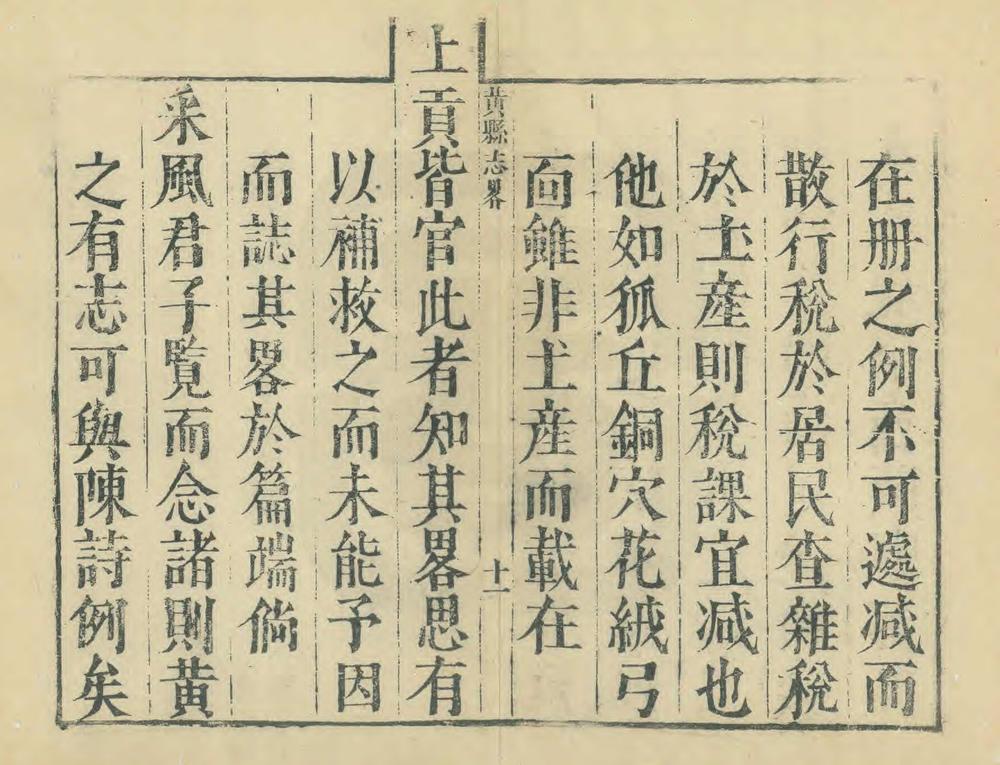 在册之例不可遽减而
散行稅於居民查雜稅
於土産則稅課宜减也
他如狐丘銅穴花絨弓
面雖非土産而載在
黄縣志畧
十一
上貢皆官此者知其畧思有
以補救之而未能予因
而誌其畧於篇端倘
采風君子覧而念諸則黄
之有志可與陳詩例矣